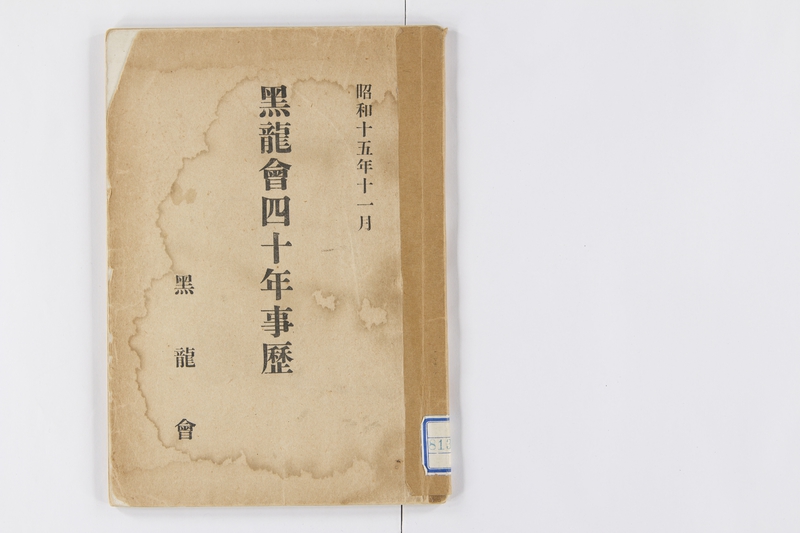 昭和十五年十一月
黑龍會四十年事歷
黑龍會